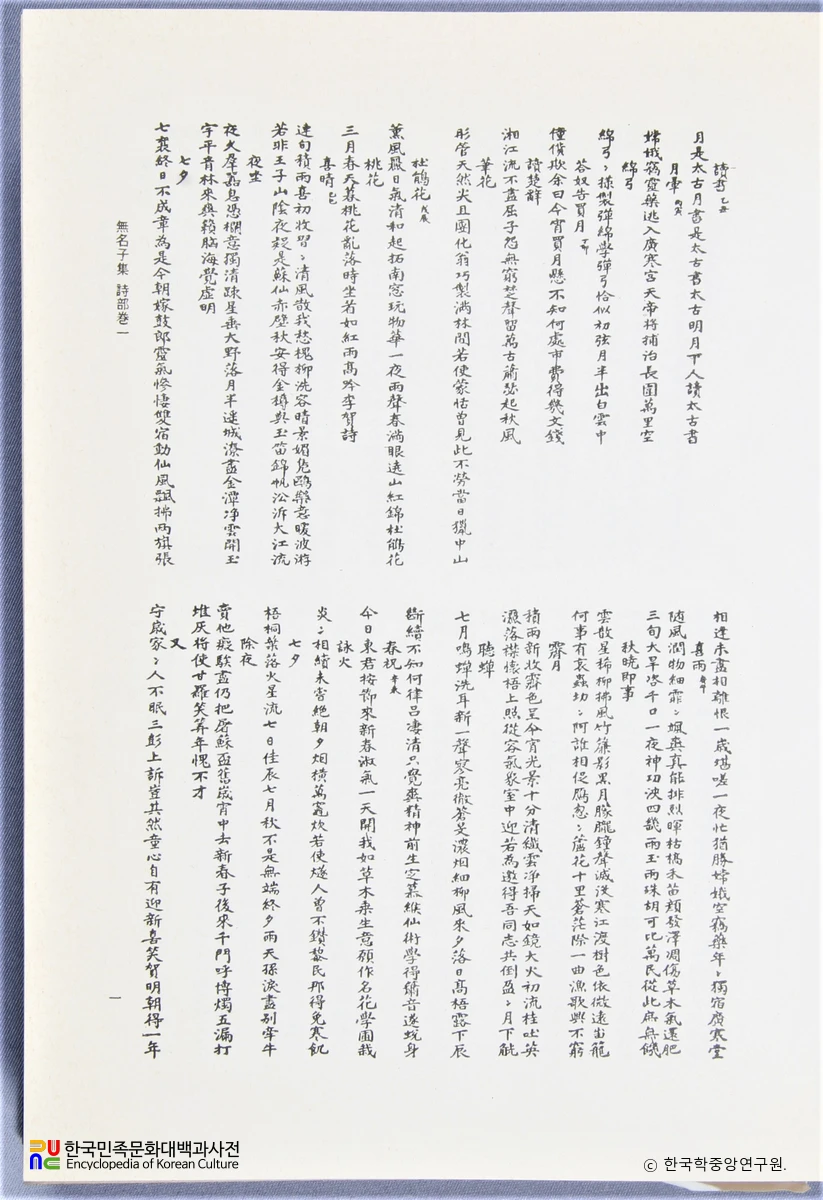 讀書 乙丑
月是太古月書是太古書太古明月下人讀太古書
月暈 丙寅
嫦娥竊靈藥逃入廣寒宮天帝將捕治長圍萬里空
綿弓
綿弓〻樣製彈綿學彈弓恰似初弦月半出白雲中
答奴告買月 丁卯
僮僕欺余曰今宵買月懸不知何處市費得幾文錢
讀楚辭
湘江流不盡屈子怨無窮楚聲留萬古蕭瑟起秋風
筆花
彤管天然尖且圓化翁巧製滿林間若使蒙恬曾見此不勞當日獵中山
杜鵑花 戊辰
薰風暖日氣清和起拓南窓玩物華一夜雨聲春滿眼遠山紅錦杜鵑花
桃花
三月春天暮桃花亂落時坐若如紅雨高吟李賀詩
喜晴 己巳
連旬積雨喜初收習〻清風散我愁槐柳洗容晴景媚鳧鷗樂意暖波游
若非王子山陰夜疑是蘇仙赤壁秋安得金樽與玉笛錦帆泝大江流
夜坐
夜久羣囂息憑欄意獨清疎星垂大野落月半遙城漆盡金潭净雲開玉
宇平胥林來爽籟腦海覺虛明
七夕
七襄終日不成章為是今朝嫁鼓郎靈氣慘悽雙宿動仙風飄拂兩旗張
相逢未盡相離恨一歲堪嗟一夜忙猶勝嫦娥空竊藥年〻獨宿廣寒堂
喜雨 庚午
隨風潤物細霏〻颯爽真能排烈暉枯槁禾苗頳發澤凋傷草木氣還肥
三旬大旱吝千口一夜神功浹四畿雨玉雨珠胡可比萬民從此庶無饑
秋曉即事
雲散星稀柳拂風竹簾影黑月朦朧鐘聲減沒寒江渡樹色依微遠岫籠
何事有哀蟲切〻阿誰相促鴈怱〻蘆花十里蒼茫際一曲漁歌興不窮
霽月
積雨新收霽色呈今宵光景十分清纖雲净掃天如鏡大火初流桂吐英
濕落襟懷梧上照從容氣象室中迎若為邀得吾同志共倒盈〻月下觥
聽蟬
七月鳴蟬洗耳新一聲寥亮徹蒼旻濃烟細柳風來夕落日高梧露下辰
斷續不知何律呂凄清只覺爽精神前生定慕緱仙術學得簫音遂蛻身
春祝 辛未
今日東君按節來新春淑氣一天開我如草木乘生意願作名花學圃栽
詠火
炎〻相續未嘗絕朝夕烟橫萬竈炊若使燧人曾不鑽黎民那得免寒飢
七夕
梧桐葉落火星流七日佳辰七月秋不是無端終夕雨天孫淚盡別牽牛
除夜
賣他癡騃盡仍把屠蘇盃舊歲宵中去新春子後來千門呼博燭五漏打
堆灰將使甘羅笑筭年愧不才
又
守歲家〻人不眠三彭上訴豈其然童心自有迎新喜笑賀明朝得一年
無名子集 詩部卷一
一
한국민족문화대백과사전
Encyclopedia of Korean Culture
ⓒ 한국학중앙연구원.